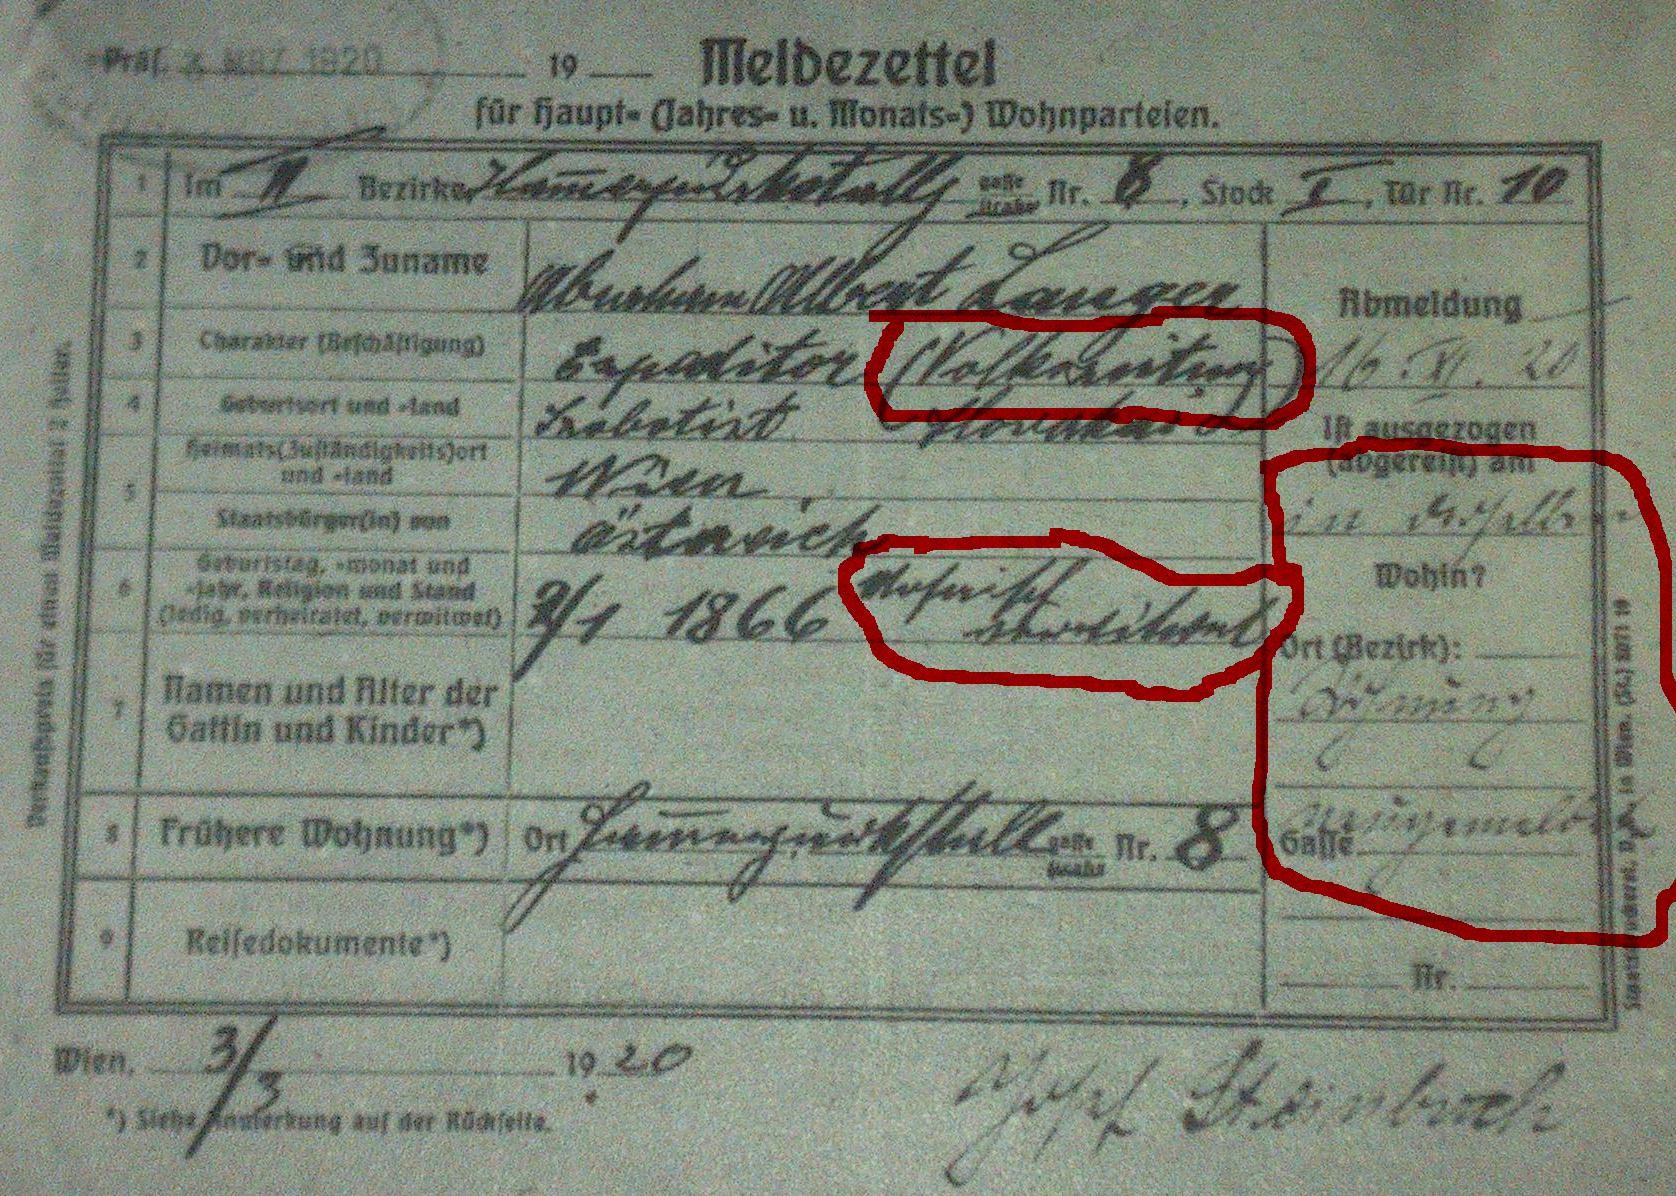 Präs. 3. MRZ. 1920 19
Meldezettel
für Haupt- (Jahres- u. Monats-) Wohnparteien.
1 Im II Bezirke, gasse straße Nr. 8, Stock I, Tür Nr. 10
2 Vor- und Zuname Abraham Albert Langer
3 Charakter (Beschäftigung) Expeditor (Volkszeitung)
4 Geburtsort und -land Slovakei
5 Heimats(Zuständigkeits)ort und -land Wien
Staatsbürger(in) von Österreich
6 Geburtstag, -monat und
-jahr, Religion und Stand
(ledig, verheiratet, verwitwet) 2/1 1866 mosaisch
verwitwet
7 Namen und Alter der
Gattin und Kinder*)
8 Frühere Wohnung*) Ort gasse straße Nr. 8
9 Reisedokumente*)
Abmeldung
16. XI. 20
Ist ausgezogen
(abgereist) am
in
Wohin?
Ort (Bezirk):
Gasse
Nr.
Wien, 3/3 1920
*) Siehe Anmerkung auf der Rückseite.
Josef Steinbruch
Verkaufspreis für einen Meldezettel 2 Heller.
Staatsdruckerei, D. A. in Wien. (St.) 8071 19